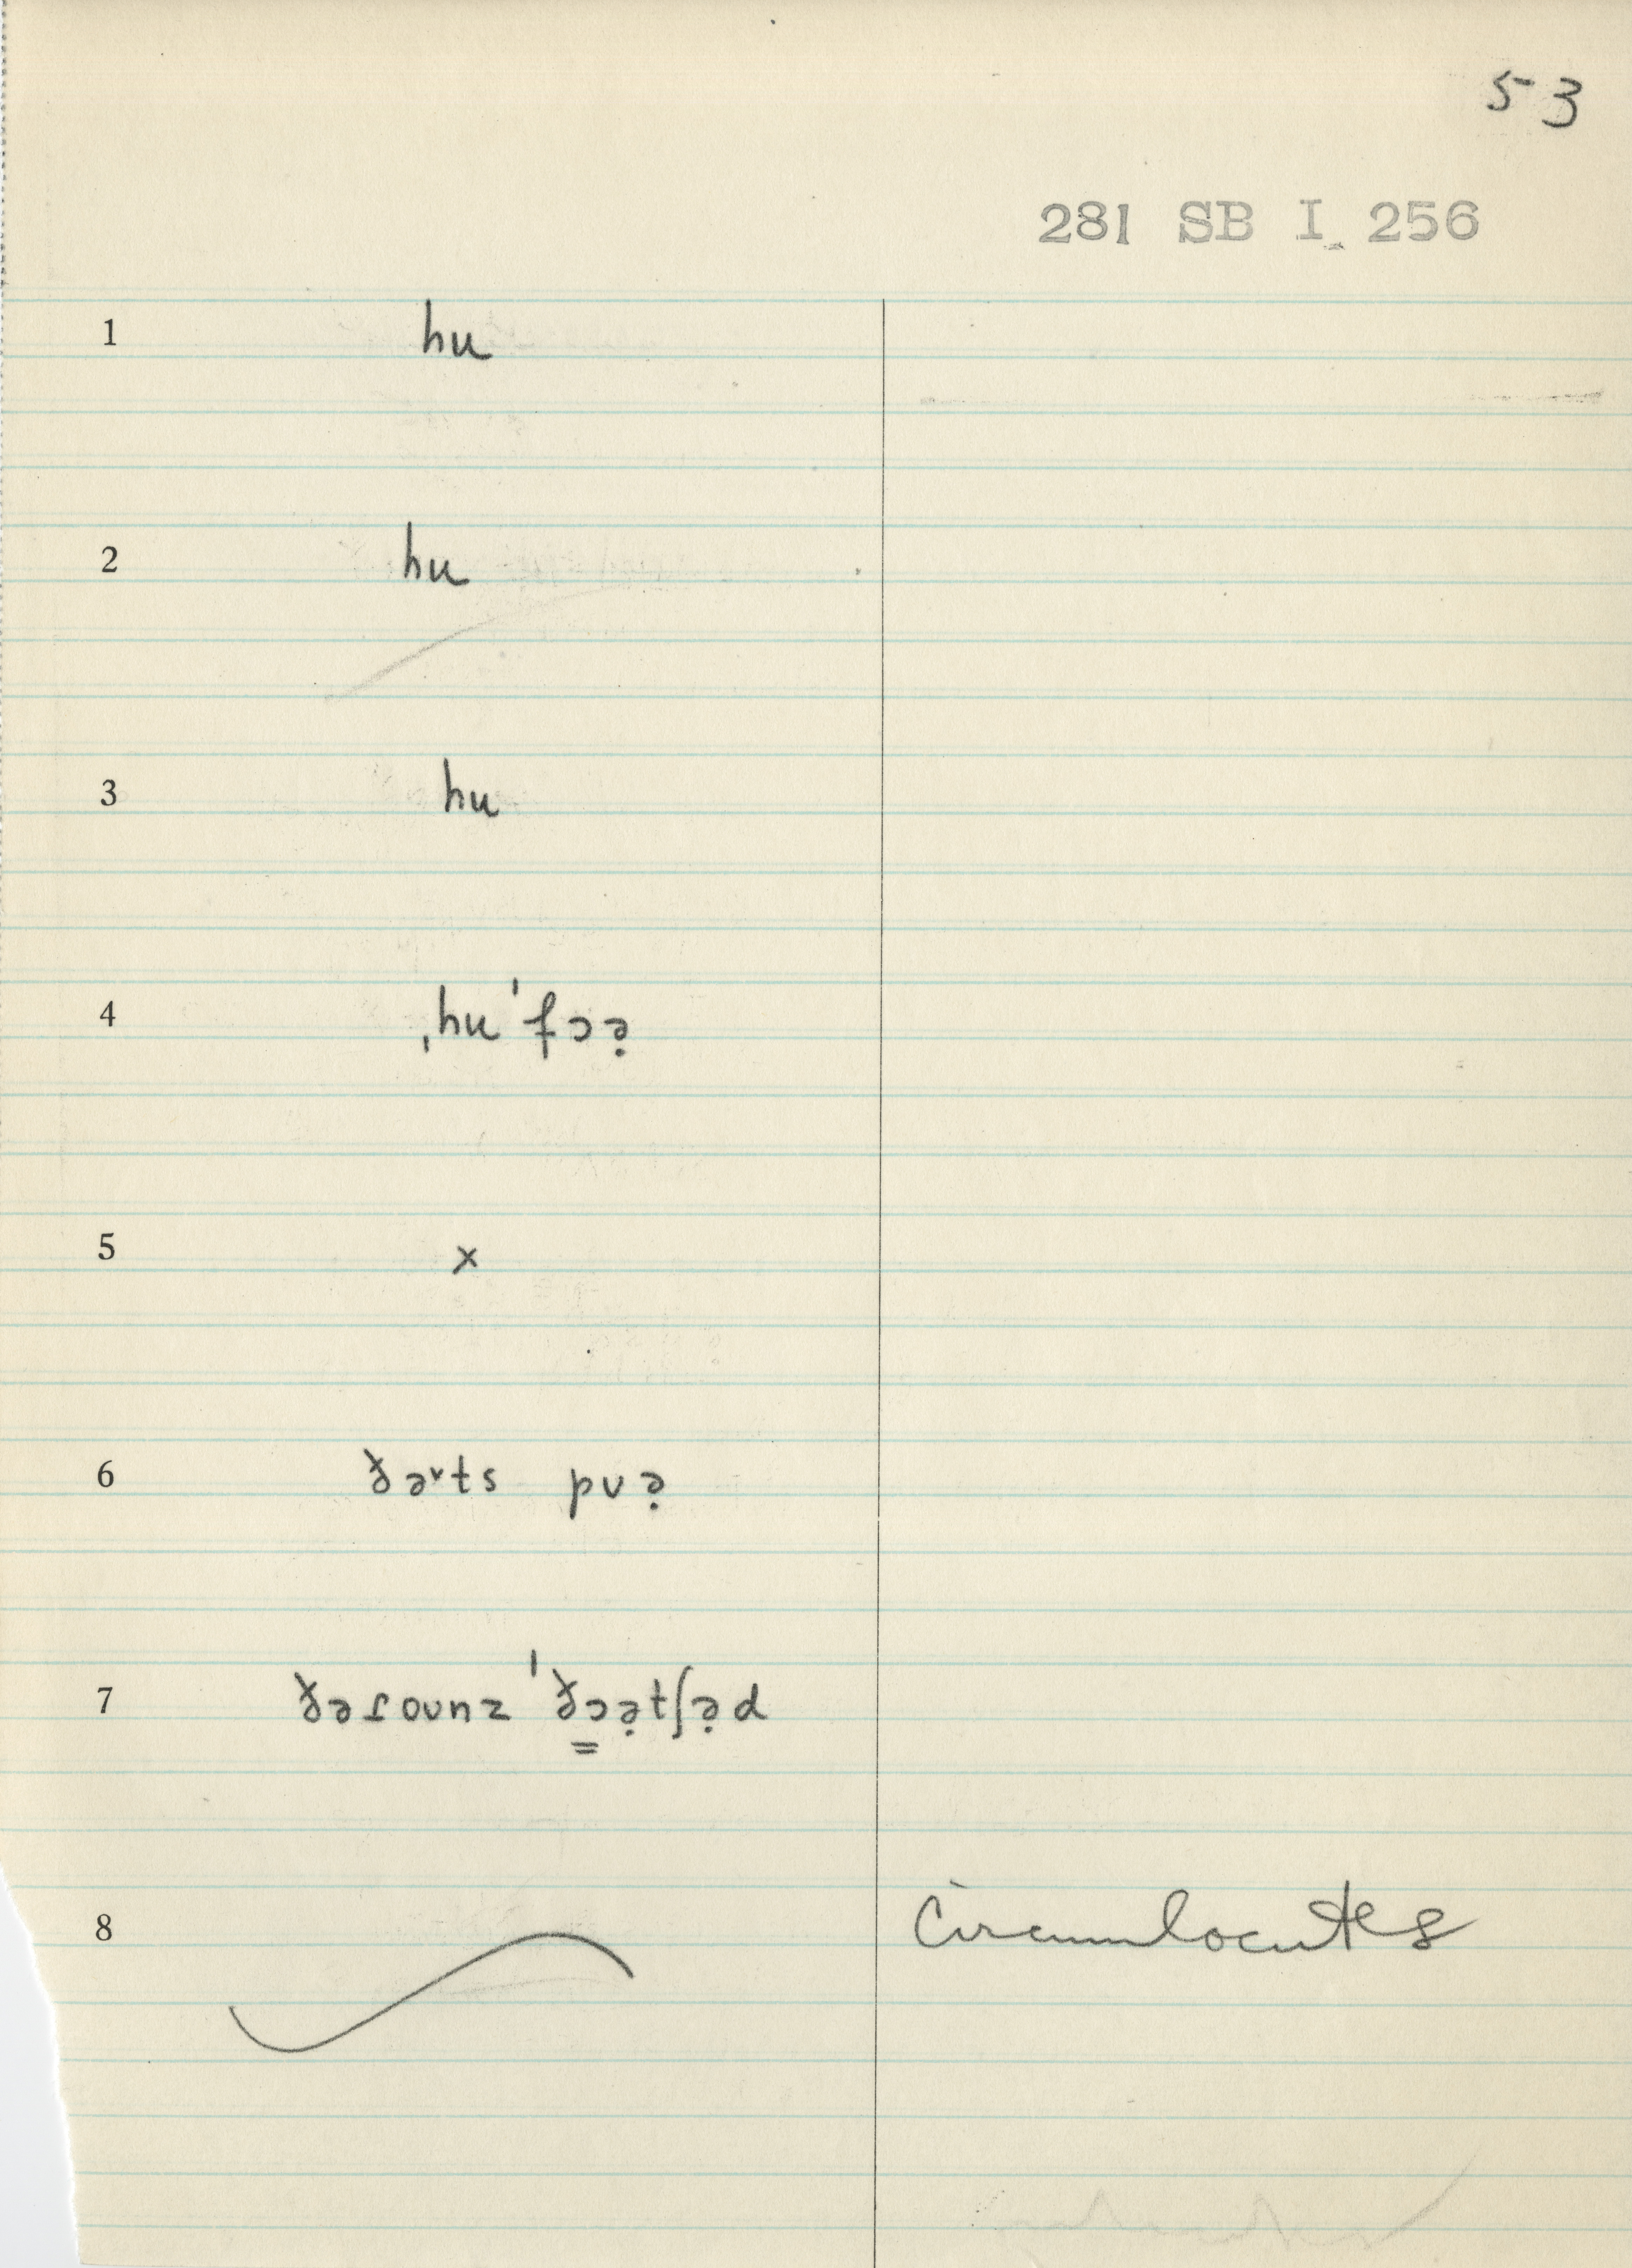 53
281 SB I 256
1 hu
2 hu
3 hu
4 ˌhuˈfɔə̣
5 x
6 ðəᵛts pʊə̣
7 ðəɾoʊnzˈðɔə̣tʃə̣d
8 Circumlocutes